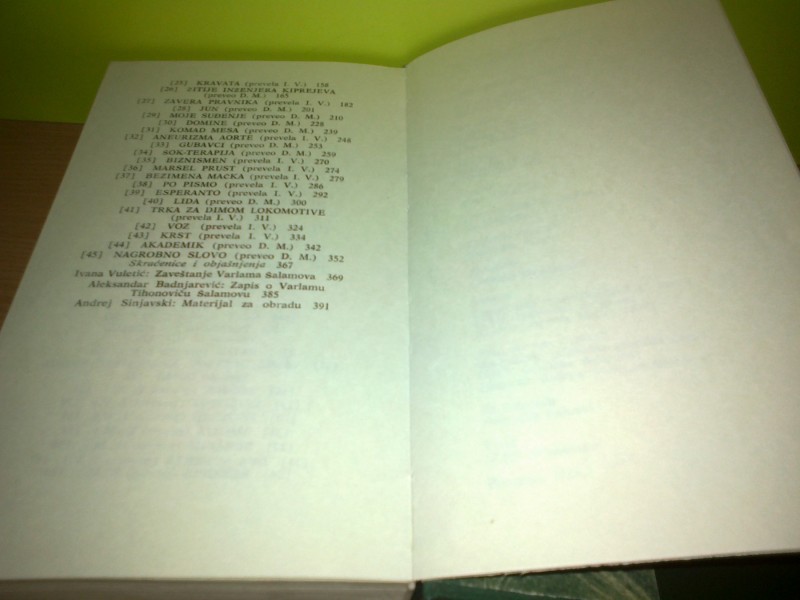 [25] KRAVATA (prevela I. V.) 158
[26] ŽITIJE INŽENJERA KIPREJEVA
(preveo D. M.) 165
[27] ZAVERA PRAVNIKA (prevela I. V.) 182
[28] JUN (preveo D. M.) 201
[29] MOJE SUĐENJE (preveo D. M.) 210
[30] DOMINE (preveo D. M.) 228
[31] KOMAD MESA (preveo D. M.) 239
[32] ANEURIZMA AORTE (prevela I. V.) 248
[33] GUBAVCI (preveo D. M.) 253
[34] ŠOK-TERAPIJA (preveo D. M.) 259
[35] BIZNISMEN (prevela I. V.) 270
[36] MARSEL PRUST (prevela I. V.) 274
[37] BEZIMENA MAČKA (prevela I. V.) 279
[38] PO PISMO (prevela I. V.) 286
[39] ESPERANTO (prevela I. V.) 292
[40] LIDA (preveo D. M.) 300
[41] TRKA ZA DIMOM LOKOMOTIVE
(prevela I. V.) 311
[42] VOZ (prevela I. V.) 324
[43] KRST (prevela I. V.) 334
[44] AKADEMIK (preveo D. M.) 342
[45] NAGROBNO SLOVO (preveo D. M.) 352
Skraćenice i objašnjenja 367
Ivana Vuletić: Zaveštanje Varlama Šalamova 369
Aleksandar Badnjarević: Zapis o Varlamu
Tihonoviču Šalamovu 385
Andrej Sinjavski: Materijal za obradu 391